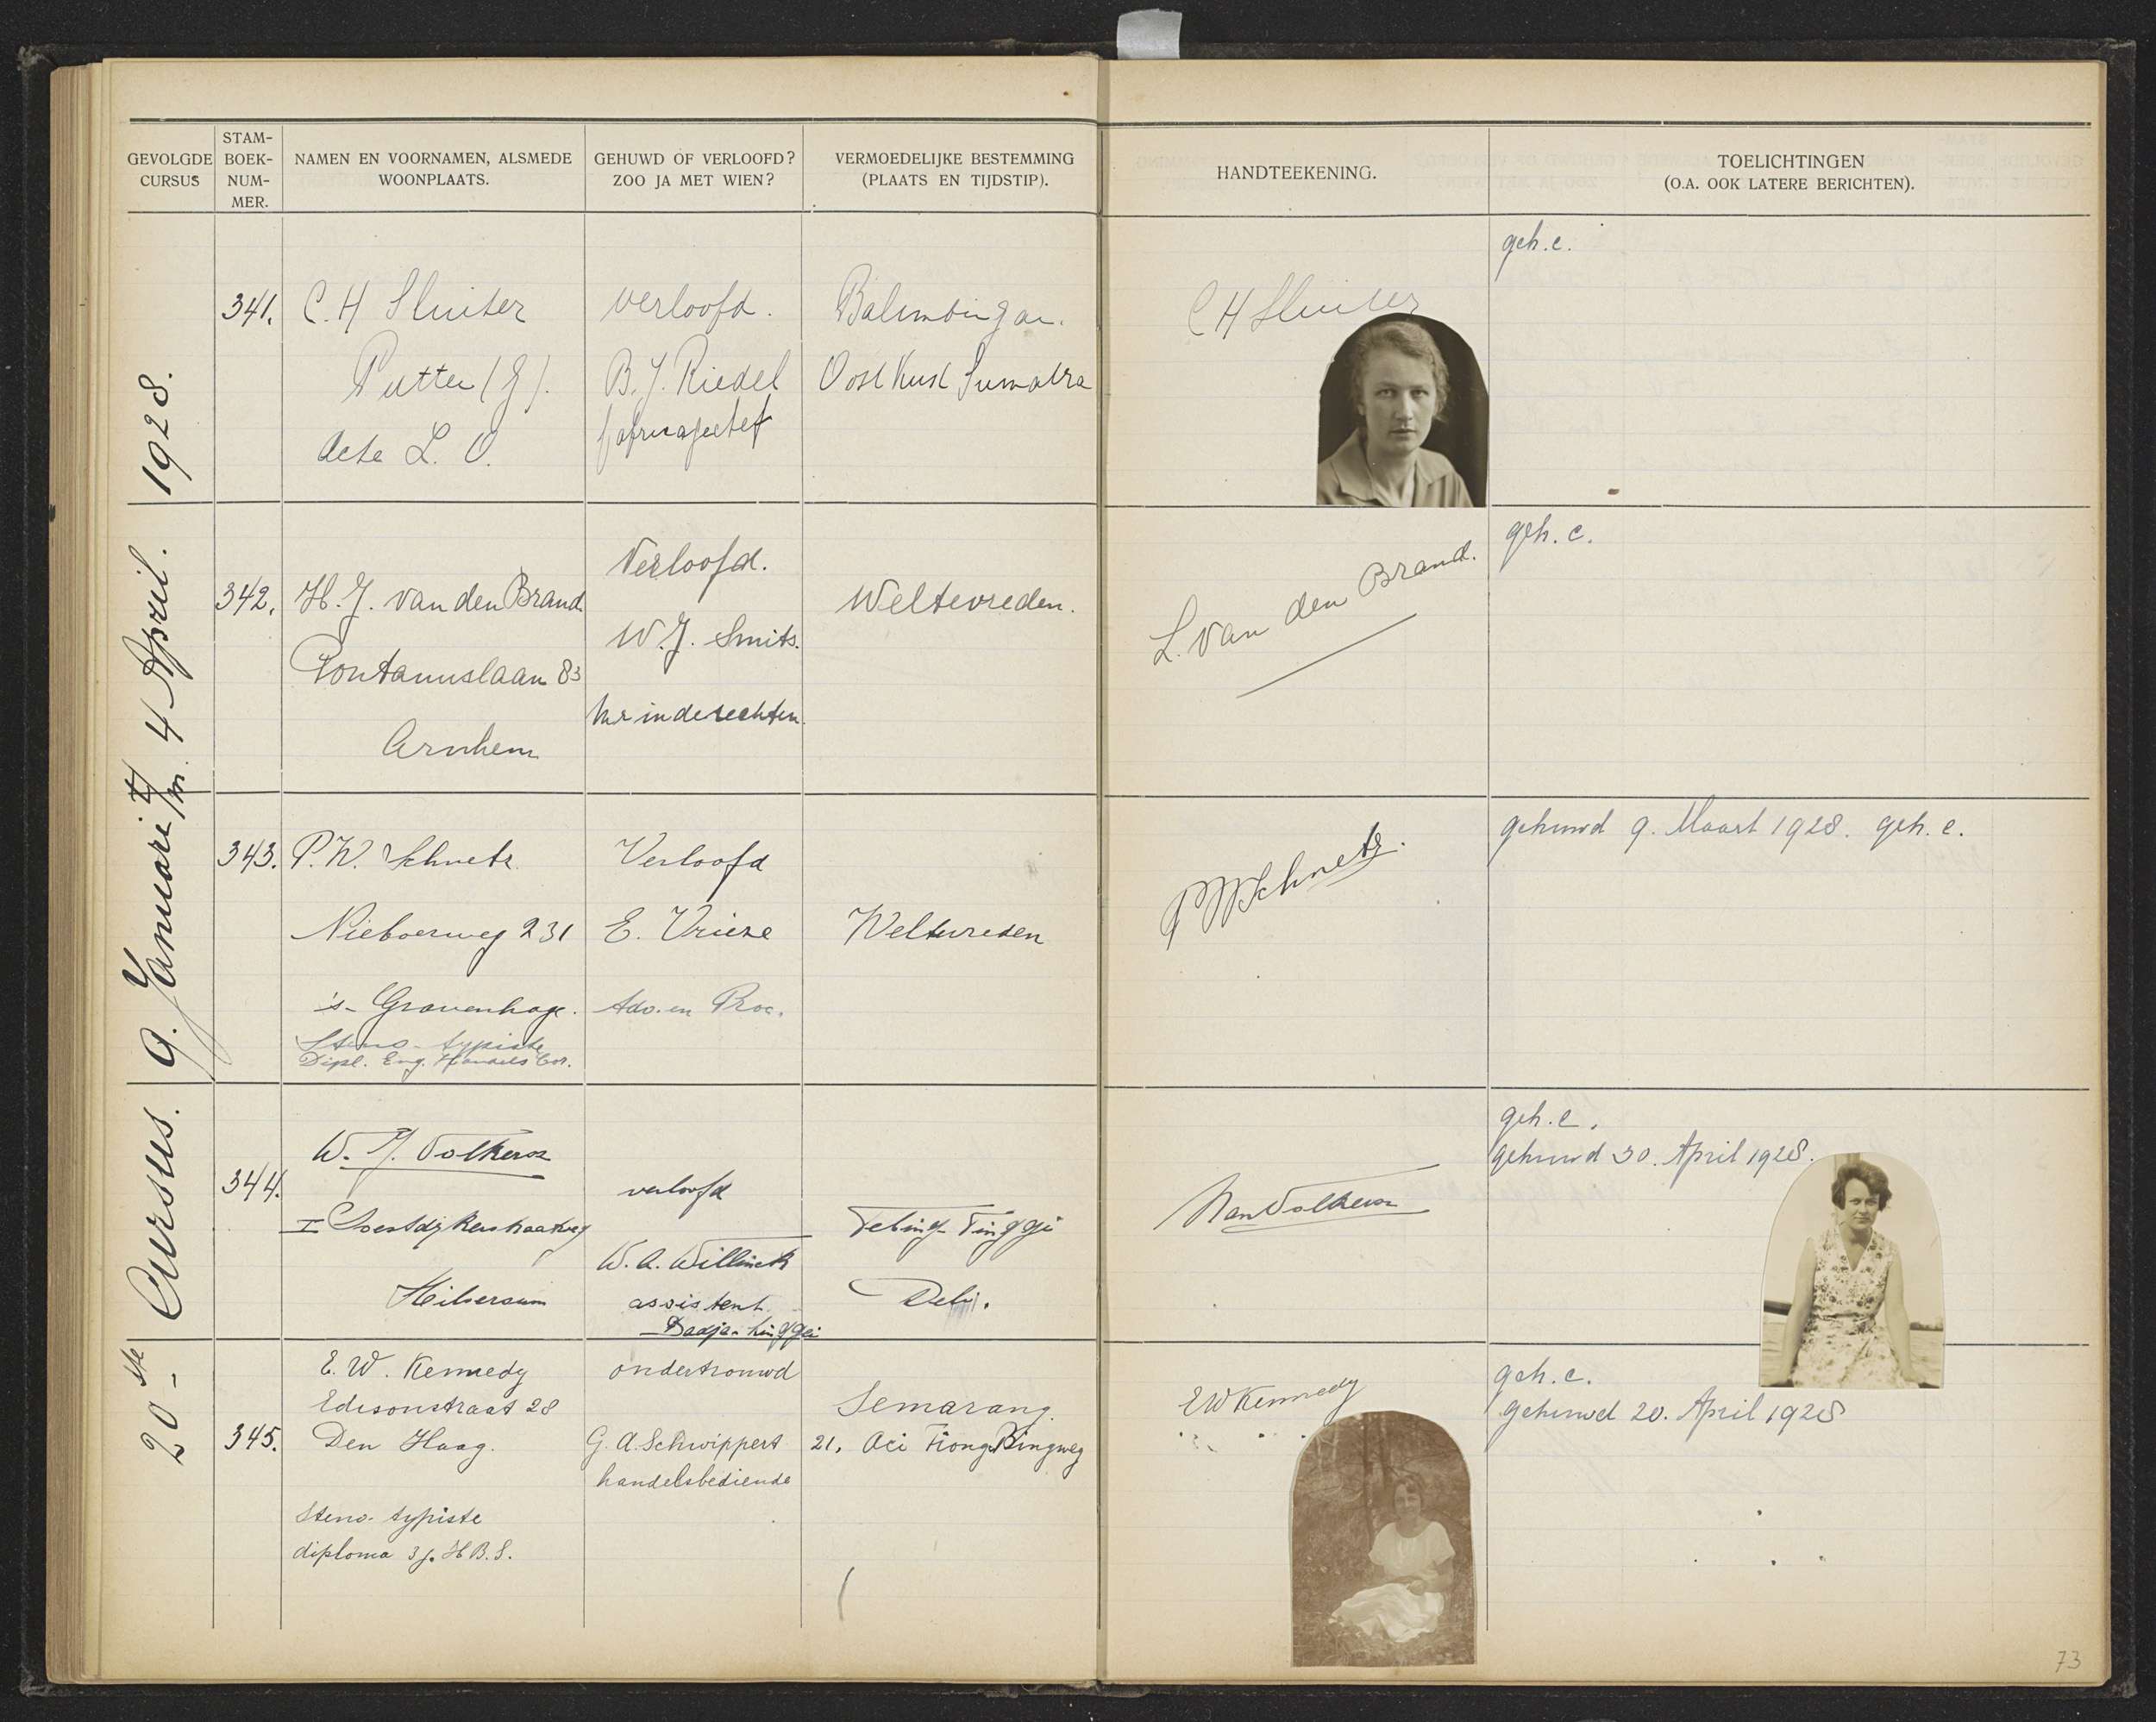 GEVOLGDE CURSUS
STAM-BOEK-NUM-MER.
NAMEN EN VOORNAMEN, ALSMEDE WOONPLAATS.
GEHUWD OF VERLOOFD? ZOO JA MET WIEN?
VERMOEDELIJKE BESTEMMING (PLAATS EN TIJDSTIP).
HANDTEEKENING.
TOELICHTINGEN (O.A. OOK LATERE BERICHTEN).
20ste Cursus. 9. Januari t/m. 4 April. 1928.
341.
C. H Sluiter
Putten (G).
Acte L. O.
verloofd.
B. J. Riedel
Balimbingan.
Oost Kust Sumatra
C H Sluiter
geh. c.
342.
H. J. van den Brand
Pontanuslaan 83
Arnhem
Verloofd.
W. J. Smits.
Mr in de rechten.
Weltevreden.
L. van den Brand.
geh. c.
343.
P. W. Schnetz
Nieboerweg 231
's-Gravenhage.
Steno-typiste
Dipl. Eng. Handels Cor.
Verloofd
E. Vrieze
Adv. en Proc.
Weltevreden
P W Schnetz.
gehuwd 9. Maart 1928. geh. c.
344.
W. J. Volkersz
I Soestdijkerstraatweg
Hilversum
verloofd
W. A. Willinck
assistent
Tebing-Tinggi
Deli.
Nan Volkersz
geh. c.
gehuwd 30. April 1928.
345.
E. W. Kennedy
Edisonstraat 28
Den Haag.
Steno-typiste
diploma 3 j. H B. S.
ondertrouwd
G. A. Schwippert
handelsbediende
Semarang.
21,
E W Kennedy
geh. c.
gehuwd 20. April 1928
73